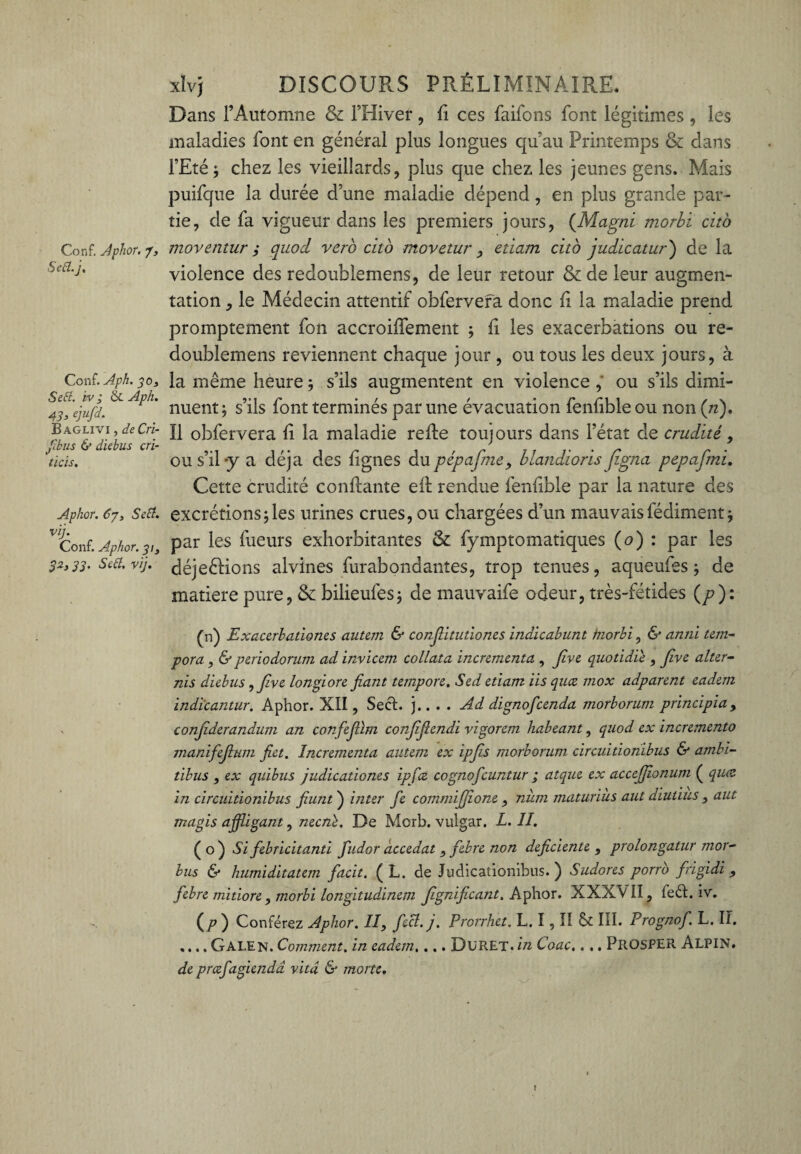 xlvj DISCOURS PRÉLIMINAIRE.
Dans l’Automne & l’Hiver, ſi ces ſaiſons ſont légitimes, les
maladies ſont en général plus longues qu’au Printemps & dans
l’Eté; chez les vieillards, plus que chez les jeunes gens. Mais
puiſque la durée d’une maladie dépend, en plus grande par-
tie, de ſa vigueur dans les premiers jours, (Magni morbi citò
Conf. Aphor. 7,
Sect. j.
moventur; quod verò citò movetur, etiam citò judicatur) de la
violence des redoublemens, de leur retour & de leur augmen-
tation, le Médecin attentif obſervera donc ſi la maladie prend
promptement ſon accroiſſement; ſi les exacerbations ou re-
doublemens reviennent chaque jour, ou tous les deux jours, à
Conf. Aph. 30,
Sect. iv; & Aph.
43, ejuſd.
Baglivi, de Cri-
ſibus & diebus cri-
ticis.
la même heure; s’ils augmentent en violence, ou s’ils dimi-
nuent; s’ils ſont terminés par une évacuation ſenſible ou non (n).
Il obſervera ſi la maladie reſte toujours dans l’état de crudité,
ou s’il y a déja des ſignes du pépaſme, blandioris ſigna pepaſmi.
Cette crudité conſtante eſt rendue ſenſible par la nature des
Aphor. 67, Sect.
vij.
Conf. Aphor. 31,
32, 33. Sect. vij.
excrétions; les urines crues, ou chargées d’un mauvais ſédiment;
par les ſueurs exhorbitantes & ſymptomatiques (o) : par les
déjections alvines ſurabondantes, trop tenues, aqueuſes; de
matiere pure, & bilieuſes; de mauvaiſe odeur, très-fétides (p):
(n) Exacerbationes autem & conſtitutiones indicabunt morbi, & anni tem-
pora, & periodorum ad invicem collata incrementa, ſive quotidiè, ſive alter-
nis diebus, ſive longiore fiant tempore. Sed etiam iis quæ mox adparent eadem
indicantur. Aphor. XII, Sect. j.... Ad dignoſcenda morborum principia,
conſiderandum an confeſtìm conſiſtendi vigorem habeant, quod ex incremento
manifeſtum fiet. Incrementa autem ex ipſis morborum circuitionibus & ambi-
tibus, ex quibus judicationes ipſæ cognoſcuntur; atque ex acceſſionum (quæ
in circuitionibus fiunt) inter ſe commiſſione, nùm maturiùs aut diutiùs, aut
magis affligant, necnè. De Morb. vulgar. L. II.
(o) Si febricitanti ſudor accedat, febre non deficiente, prolongatur mor-
bus & humiditatem facit. (L. de Judicationibus.) Sudores porrò frigidi,
febre mitiore, morbi longitudinem ſignificant. Aphor. XXXVII, ſect. iv.
(p) Conférez Aphor. II, ſect. j. Prorrhet. L. I, II & III. Prognoſ. L. II.
.... Galen. Comment. in eadem.... Duret. in Coac.... Prosper Alpin.
de præſagiendâ vitâ & morte.